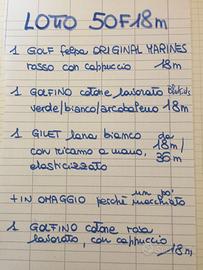 LOTTO 50F18m
1 GOLF felpa ORIGINAL MARINES
rosso con cappuccio 18m
1 GOLFINO cotone lavorato
verde/bianco/arcobaleno 18m
1 GILET lana bianco da
con ricamo a mano, 18m/
elasticizzato 36m
+ IN OMAGGIO perché un po'
macchiato
1 GOLFINO cotone rosa
lavorato, con cappuccio
18m